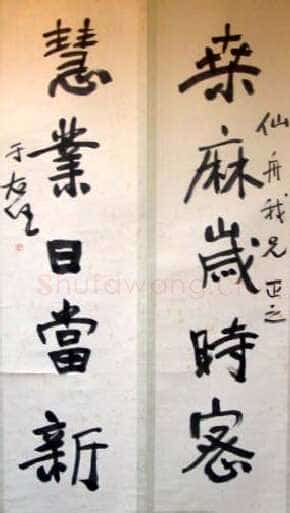 桑麻歲時密
仙舟我兄正之
慧業日當新
于右任